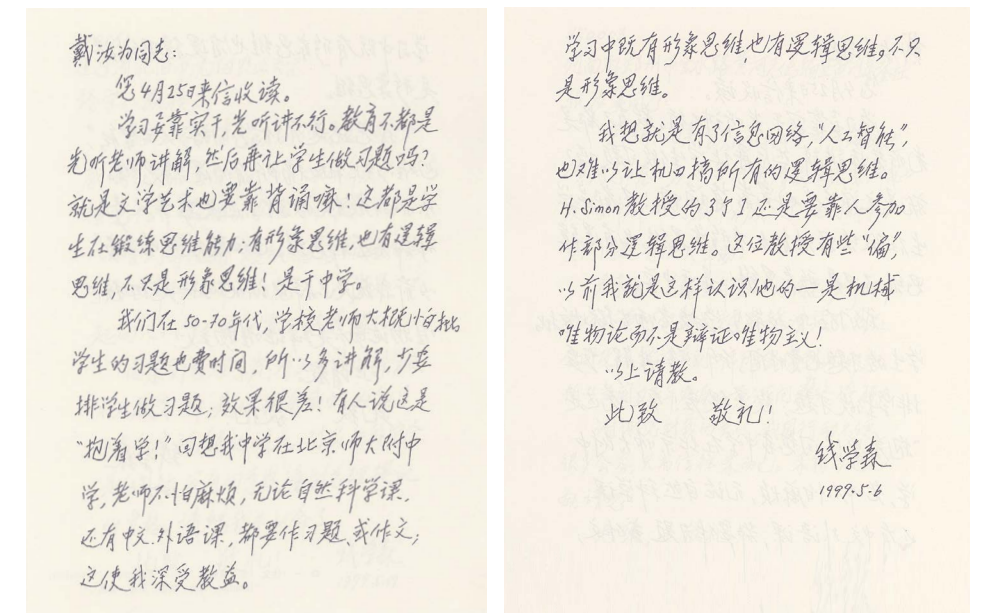 戴汝为同志：
您4月25日来信收读。
学习要靠实干，光听讲不行。教育不都是
先听老师讲解，然后再让学生做习题吗？
就是文学艺术也要靠背诵嘛！这都是学
生在锻练思维能力：有形象思维，也有逻辑
思维，不只是形象思维！是干中学。
我们在50-70年代，学校老师大概怕批
学生的习题也费时间，所以多讲解，少安
排学生做习题；效果很差！有人说这是
“抱着学！”回想我中学在北京师大附中
学，老师不怕麻烦，无论自然科学课，
还有中文、外语课，都要作习题，或作文；
这使我深受教益。
学习中既有形象思维，也有逻辑思维。不只
是形象思维。
我想就是有了信息网络，“人工智能”，
也难以让机口搞所有的逻辑思维。
H.Simon教授的3个I还是要靠人参加
作部分逻辑思维。这位教授有些“偏”，
以前我就是这样认识他的——是机械
唯物论而不是辩证唯物主义！
以上请教。
此致 敬礼！
钱学森
1999.5.6